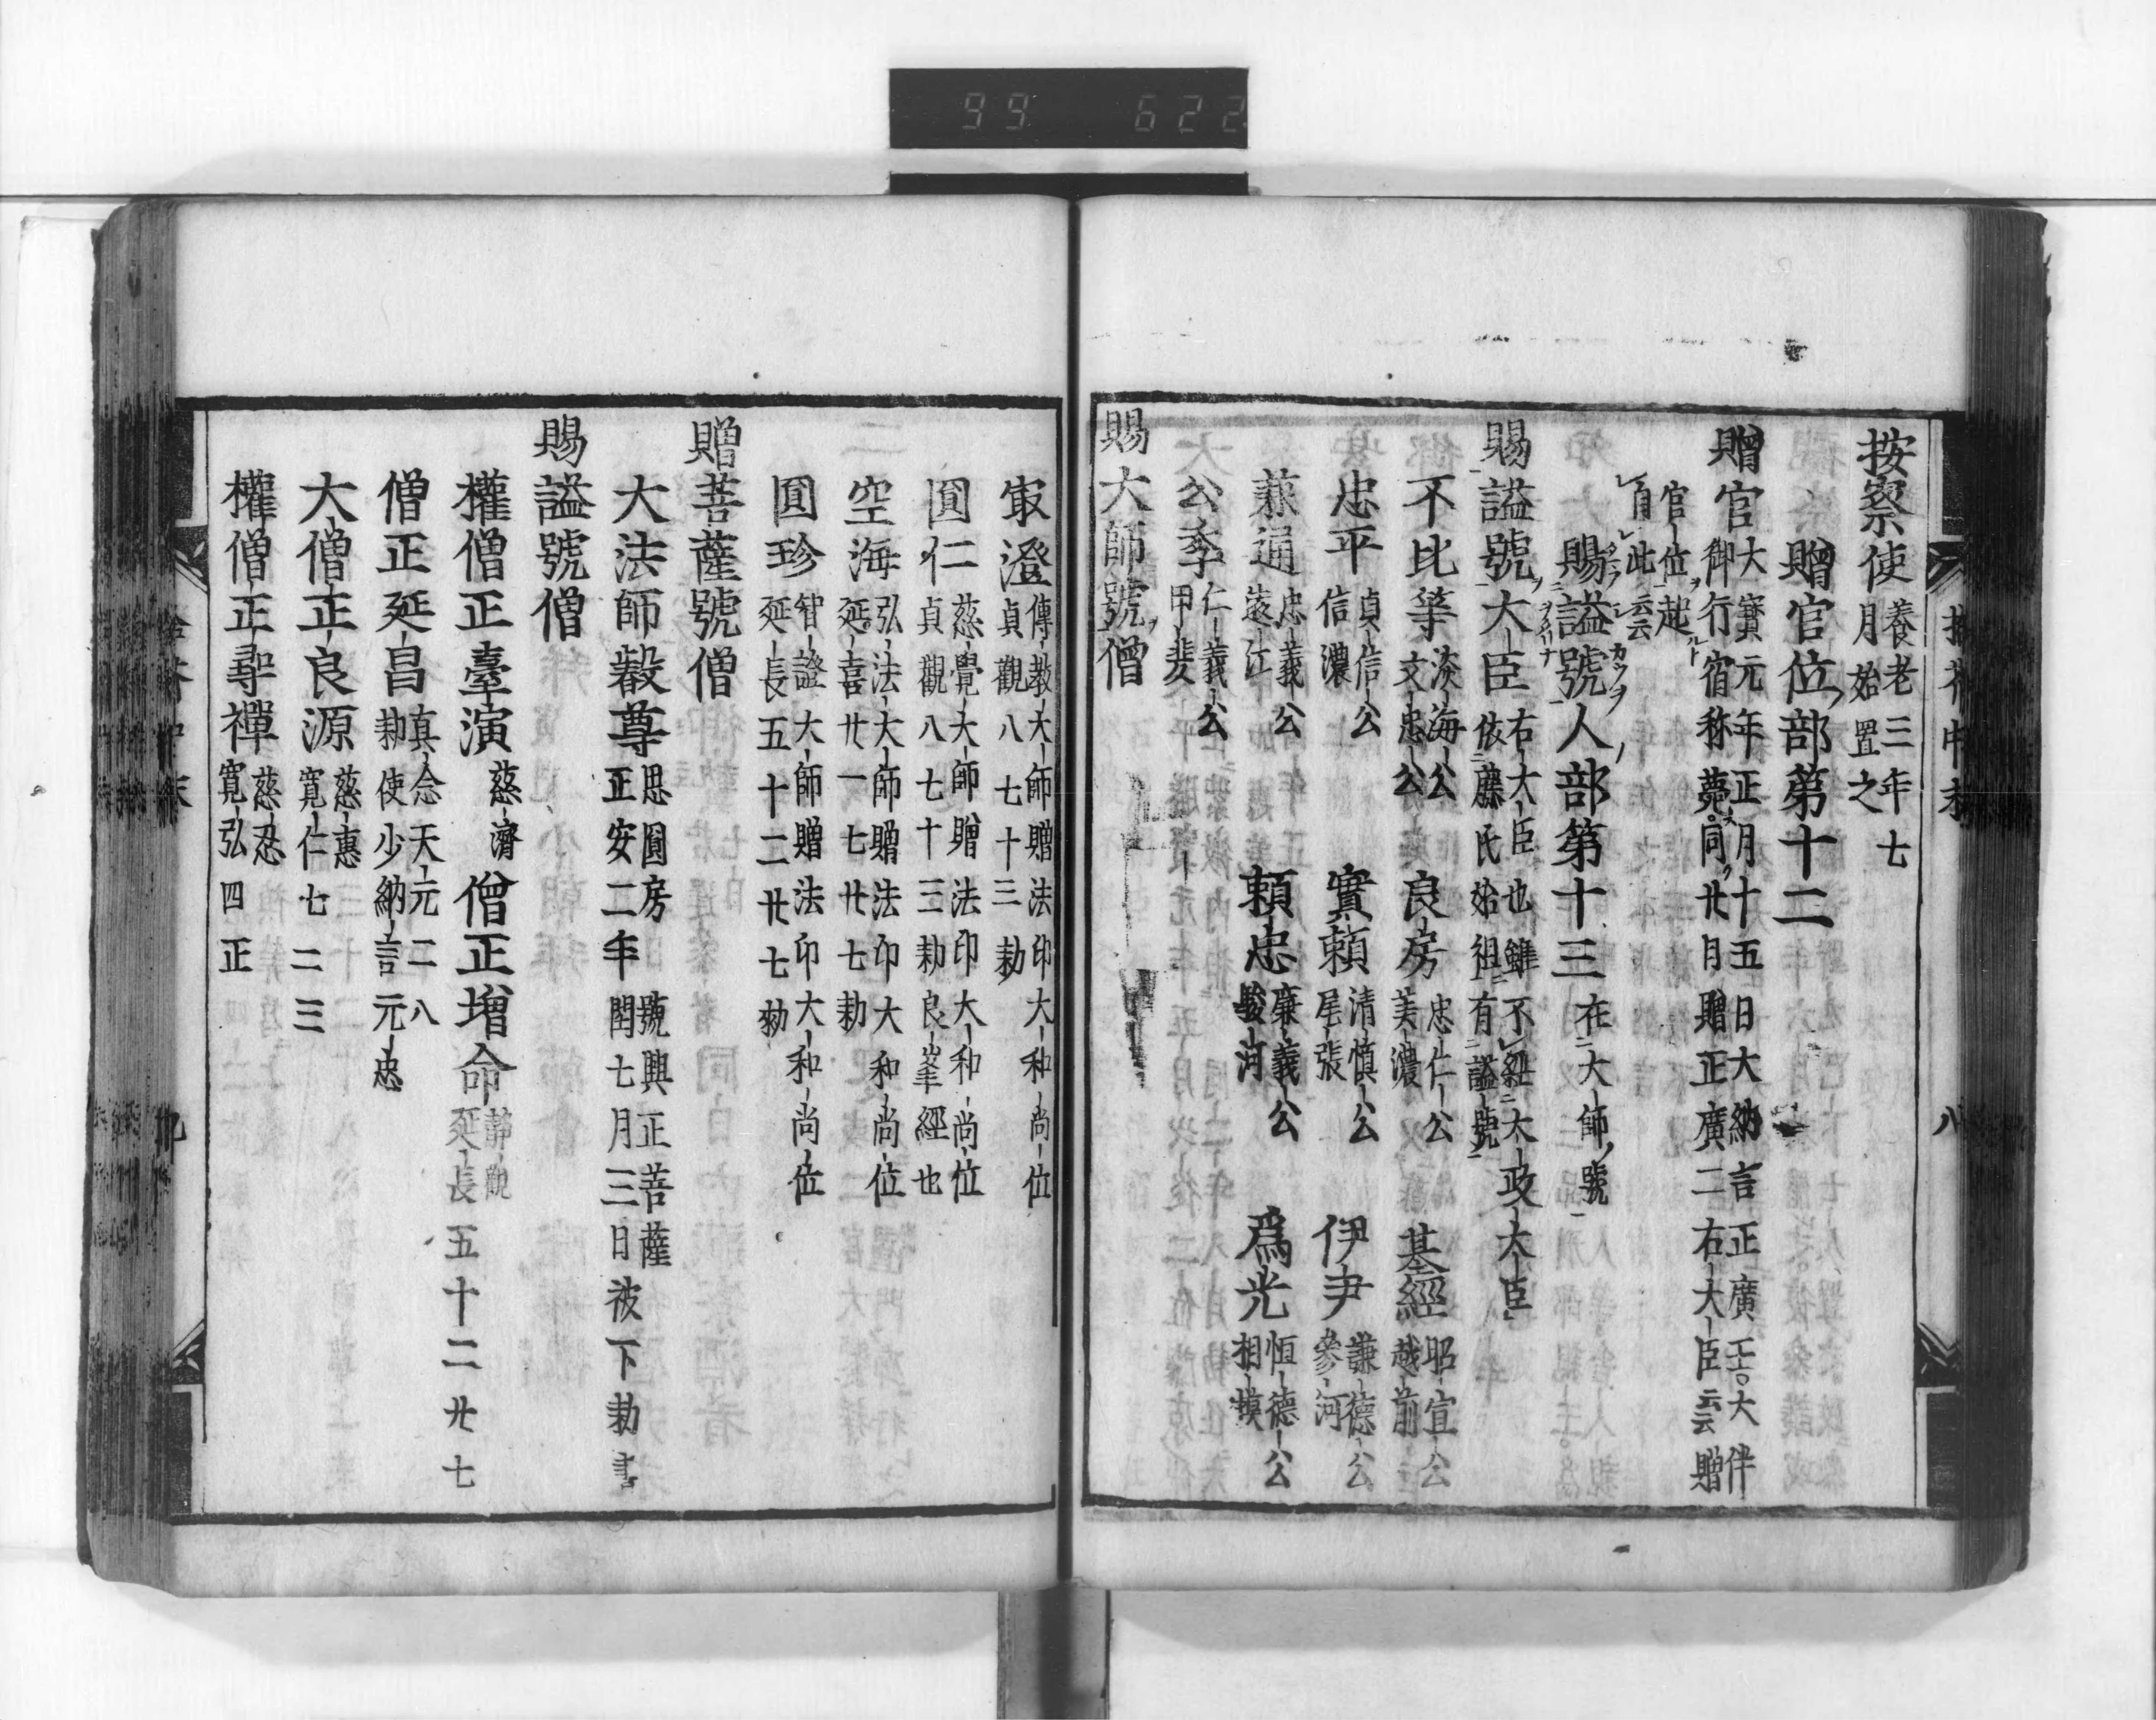 99 622
按察使 養老三年七
月始置之
贈官位部第十二
贈官 大寶元年正月十五日大納言正廣三大伴
御行宿称薨同廿日贈正廣二右大臣云云贈
官位起
自此云云
賜謚號人部第十三 在大師號
賜謚號大臣 右大臣也雖不經太政大臣
依藤氏始祖有謚號
不比等 淡海公
文忠公
良房 忠仁公
美濃
基經 昭宣公
越前
忠平 貞信公
信濃
實頼 清慎公
尾張
伊尹 謙德公
參河
兼通 忠義公
遠江
頼忠 廉義公
駿河
爲光 恒德公
相摸
公季 仁義公
甲斐
賜大師號僧
冣澄 傳教大師贈法印大和尚位
貞觀八七十三勅
圓仁 慈覺大師贈法印大和尚位
貞觀八七十三勅良峯經也
空海 弘法大師贈法印大和尚位
延喜廿一七廿七勅
圓珍 智證大師贈法印大和尚位
延長五十二廿七勅
贈菩薩號僧
大法師叡尊 思圓房 號興正菩薩
正安二年閏七月三日被下勅書
賜謚號僧
權僧正臺演 慈濟 僧正増命 靜觀
延長五十二廿七
僧正延昌 真念天元二八
勅使少納言元忠
大僧正良源 慈惠
寛仁七二三
權僧正尋禪 慈忍
寛弘四正
八
九